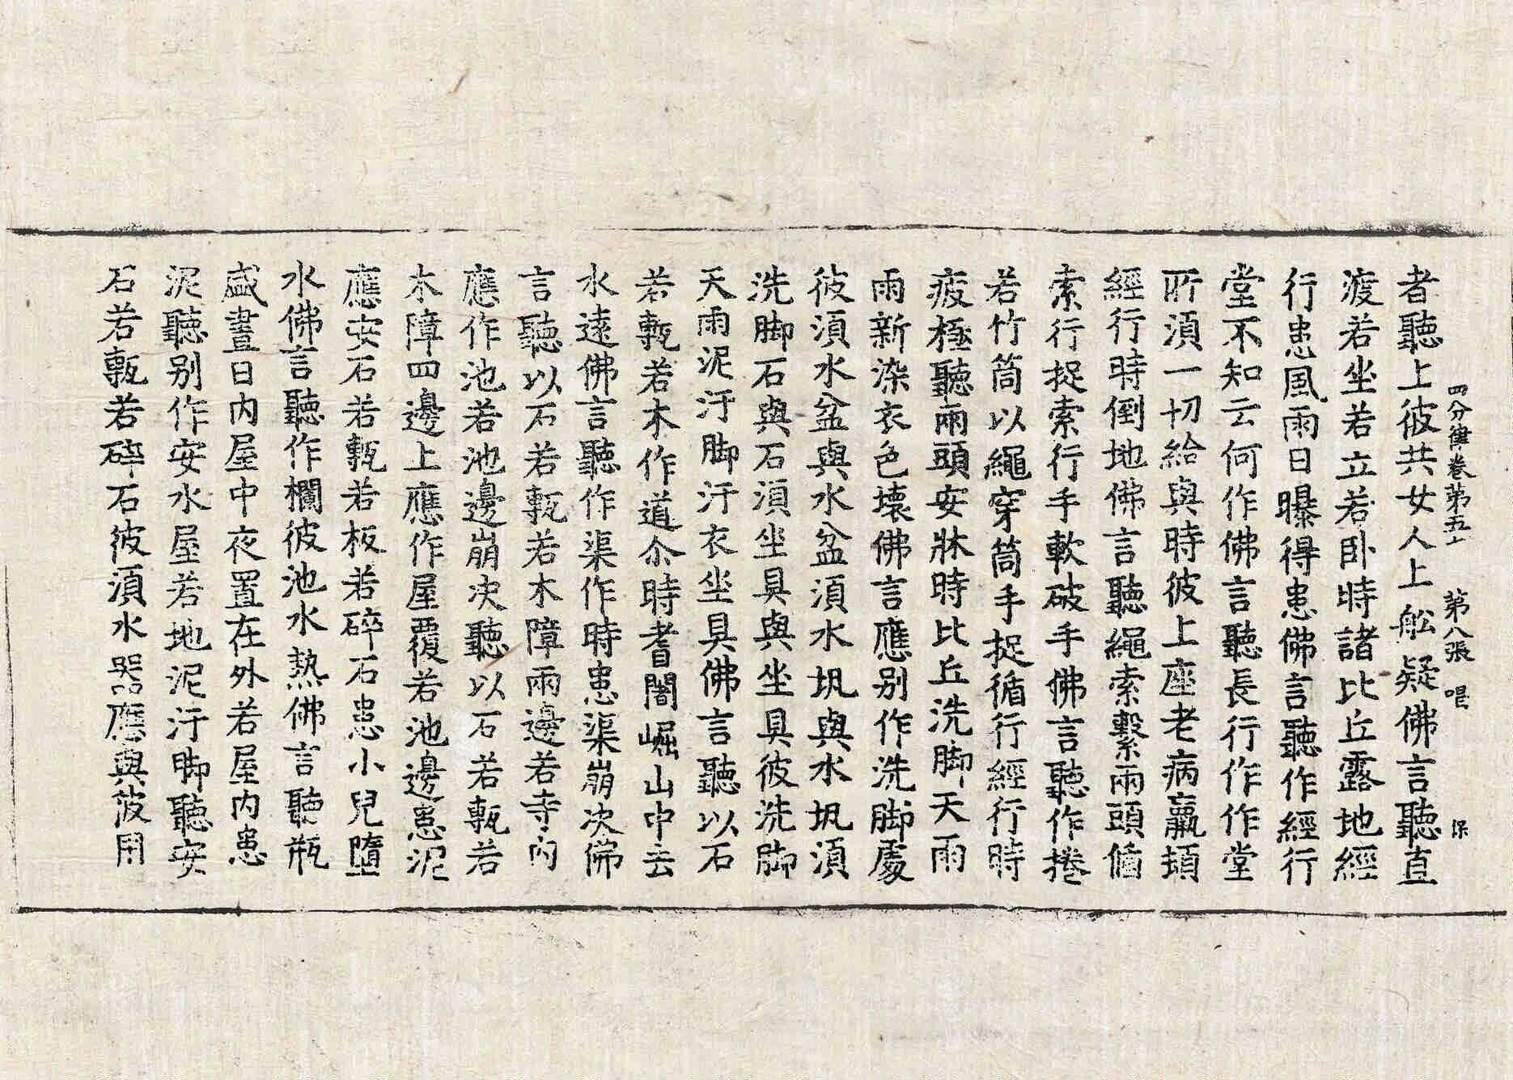 四分律卷第五十 第八張 唱 保
者聽上彼共女人上舩疑佛言聽直
渡若坐若立若卧時諸比丘露地經
行患風雨日曝得患佛言聽作經行
堂不知云何作佛言聽長行作作堂
所湏一切給與時彼上座老病羸頓
經行時倒地佛言聽繩索繫兩頭循
索行捉索行手軟破手佛言聽作捲
若竹筒以繩穿筒手捉循行經行時
疲極聽兩頭安牀時比丘洗脚天雨
雨新染衣色壞佛言應別作洗脚處
彼湏水盆與水盆湏水㼜與水㼜湏
洗脚石與石湏坐具與坐具彼洗脚
天雨泥汙脚汙衣坐具佛言聽以石
若甎若木作道尒時耆闍崛山中去
水遠佛言聽作渠作時患渠崩决佛
言聽以石若甎若木障雨邊若寺內
應作池若池邊崩决聽以石若甎若
木障四邊上應作屋覆若池邊患泥
應安石若甎若板若碎石患小兒墮
水佛言聽作欄彼池水熱佛言聽瓶
盛晝日內屋中夜置在外若屋內患
泥聽別作安水屋若地泥汙脚聽安
石若甎若碎石彼湏水器應與彼用